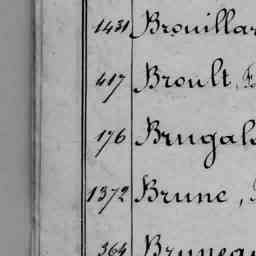 1431 Brouillar
417 Broult, F
176 Brugal
1372 Brune,
364 Bruneau